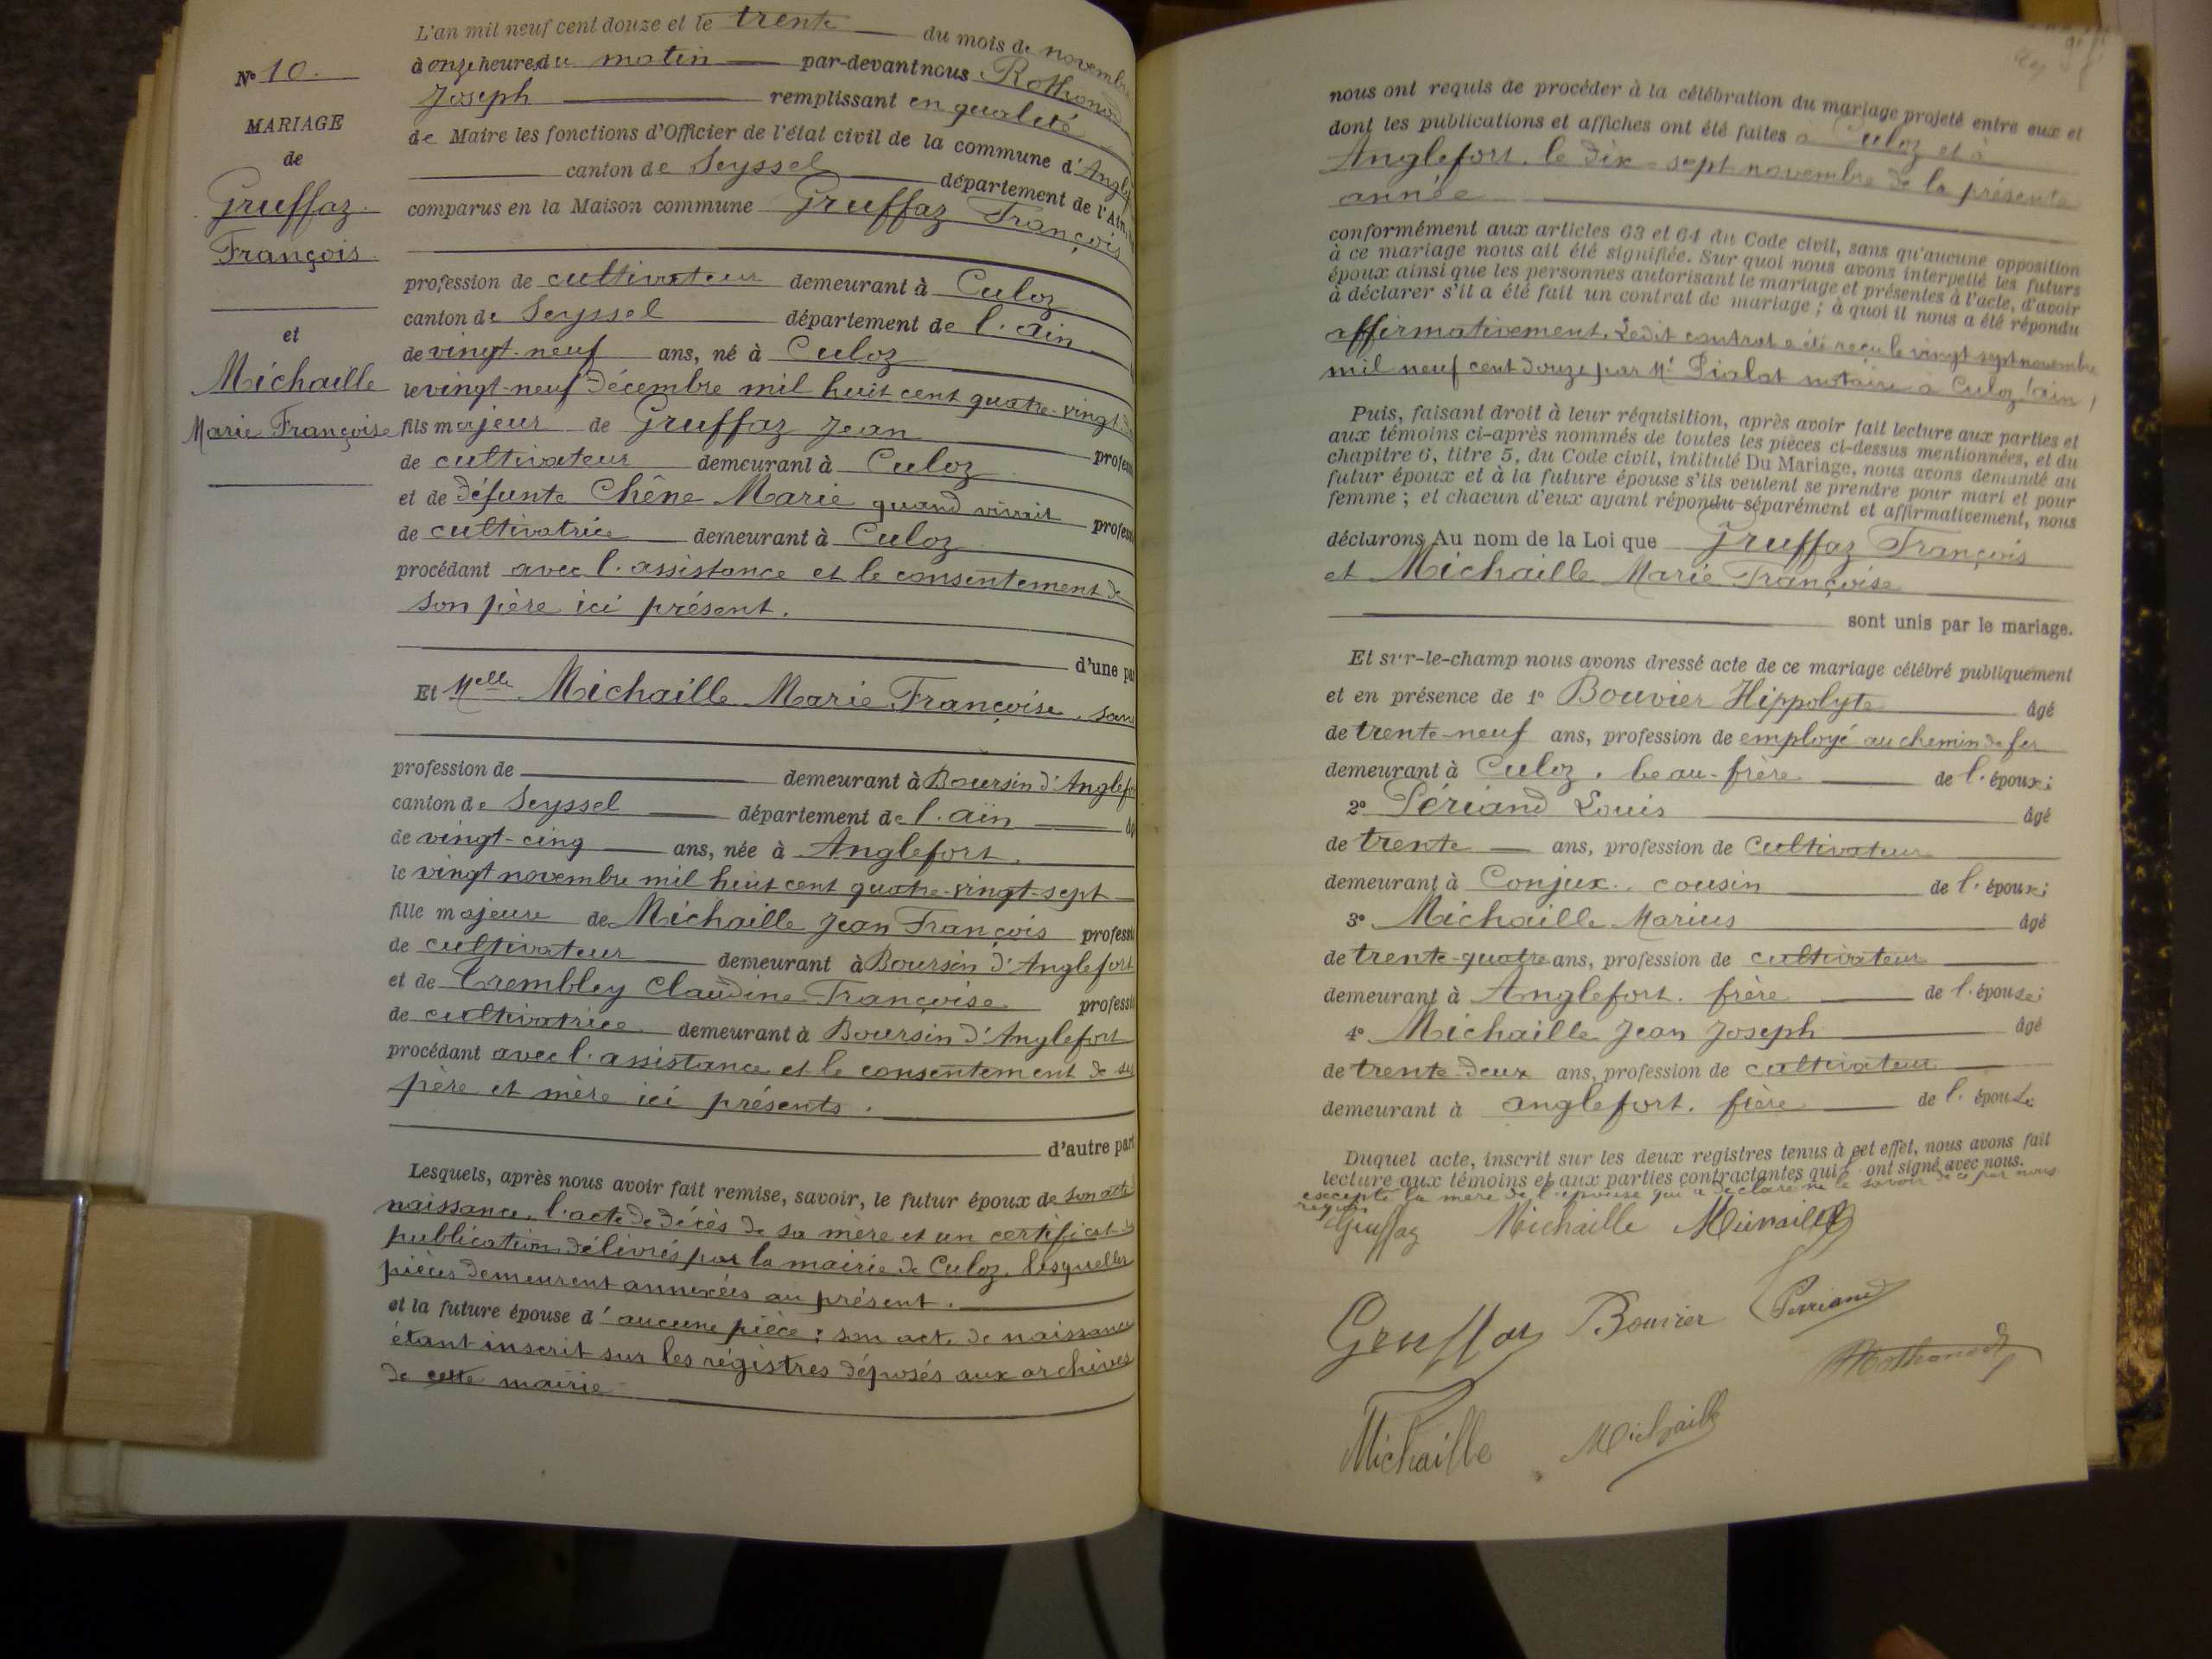 L'an mil neuf cent douze et le trente du mois de novembre
à onze heures du matin par-devant nous Rothonod
Joseph remplissant en qualité
de Maire les fonctions d'Officier de l'état civil de la commune d'Anglef
canton de Seyssel département de l'Ain,
comparus en la Maison commune Gruffaz François
profession de cultivateur demeurant à Culoz
canton de Seyssel département de l'ain
de vingt-neuf ans, né à Culoz
le vingt-neuf décembre mil huit cent quatre-vingt
fils majeur de Gruffaz Jean profess
de cultivateur demeurant à Culoz
et de défunte Chêne Marie quand vivait profess
de cultivatrice demeurant à Culoz
procédant avec l'assistance et le consentement de
son père ici présent.
d'une pa
Et Melle Michaille Marie Françoise, sans
profession de demeurant à Boursin d'Anglefo
canton de Seyssel département de l'ain
de vingt-cinq ans, née à Anglefort
le vingt novembre mil huit cent quatre-vingt-sept
fille majeure de Michaille Jean François professi
de cultivateur demeurant à Boursin d'Anglefort
et de Trembley Claudine Françoise professi
de cultivatrice demeurant à Boursin d'Anglefort
procédant avec l'assistance et le consentement de ses
père et mère ici présents.
d'autre part
Lesquels, après nous avoir fait remise, savoir, le futur époux de son acte
naissance, l'acte de décès de sa mère et un certificat de
publication délivrés par la mairie de Culoz, lesquelles
pièces demeurent annexées au présent.
et la future épouse d'aucune pièce; son acte de naissance
étant inscrit sur les régistres déposés aux archives
de cette mairie
N° 10.
MARIAGE
de
Gruffaz
François
et
Michaille
Marie Françoise
nous ont requis de procéder à la célébration du mariage projeté entre eux et
dont les publications et affiches ont été faites à Culoz et à
Anglefort, le dix-sept novembre de la présente
année
conformément aux articles 63 et 64 du Code civil, sans qu'aucune opposition
à ce mariage nous ait été signifiée. Sur quoi nous avons interpellé les futurs
époux ainsi que les personnes autorisant le mariage et présentes à l'acte, d'avoir
à déclarer s'il a été fait un contrat de mariage; à quoi il nous a été répondu
affirmativement. Ledit contrat a été reçu le vingt sept novembre
mil neuf cent douze par Me Pialat notaire à Culoz (ain)
Puis, faisant droit à leur réquisition, après avoir fait lecture aux parties et
aux témoins ci-après nommés de toutes les pièces ci-dessus mentionnées, et du
chapitre 6, titre 5, du Code civil, intitulé Du Mariage, nous avons demandé au
futur époux et à la future épouse s'ils veulent se prendre pour mari et pour
femme; et chacun d'eux ayant répondu séparément et affirmativement, nous
déclarons Au nom de la Loi que Gruffaz François
et Michaille Marie Françoise
sont unis par le mariage.
Et sur-le-champ nous avons dressé acte de ce mariage célébré publiquement
et en présence de 1° Bouvier Hippolyte âgé
de trente-neuf ans, profession de employé au chemin de fer
demeurant à Culoz, beau-frère de l'époux;
2° Périand Louis âgé
de trente ans, profession de cultivateur
demeurant à Conjux, cousin de l'époux;
3° Michaille Marius âgé
de trente-quatre ans, profession de cultivateur
demeurant à Anglefort, frère de l'épouse;
4° Michaille Jean Joseph âgé
de trente-deux ans, profession de cultivateur
demeurant à anglefort, frère de l'épouse
Duquel acte, inscrit sur les deux registres tenus à cet effet, nous avons fait
lecture aux témoins et aux parties contractantes qui ont signé avec nous.
excepté la mère de l'épouse qui a déclaré ne le savoir de ce par nous
requis
Gruffaz Michaille Michaille
Gruffaz Bouvier Perriand
Rothonod
Michaille Michaille